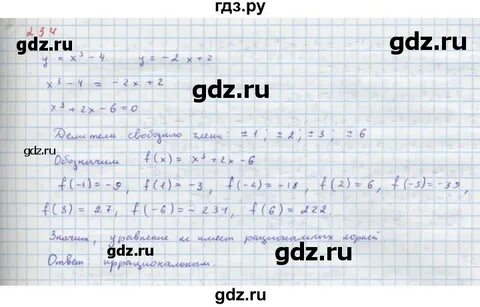 гдз.ру
234
gdz.ru gdz.ru
y = x³ - 4 y = -2x + 2
x³ - 4 = -2x + 2
x³ + 2x - 6 = 0
gdz.ru
Делители свободного члена: ±1; ±2; ±3; ±6
Обозначим f(x) = x³ + 2x - 6
gdz.ru
f(-1) = -9, f(1) = -3, f(-2) = -18, f(2) = 6, f(-3) = -39,
f(3) = 27, f(-6) = -234, f(6) = 222.
gdz.ru
Значит, уравнение не имеет рациональных корней.
Ответ: иррациональным.
gdz.ru gdz.ru